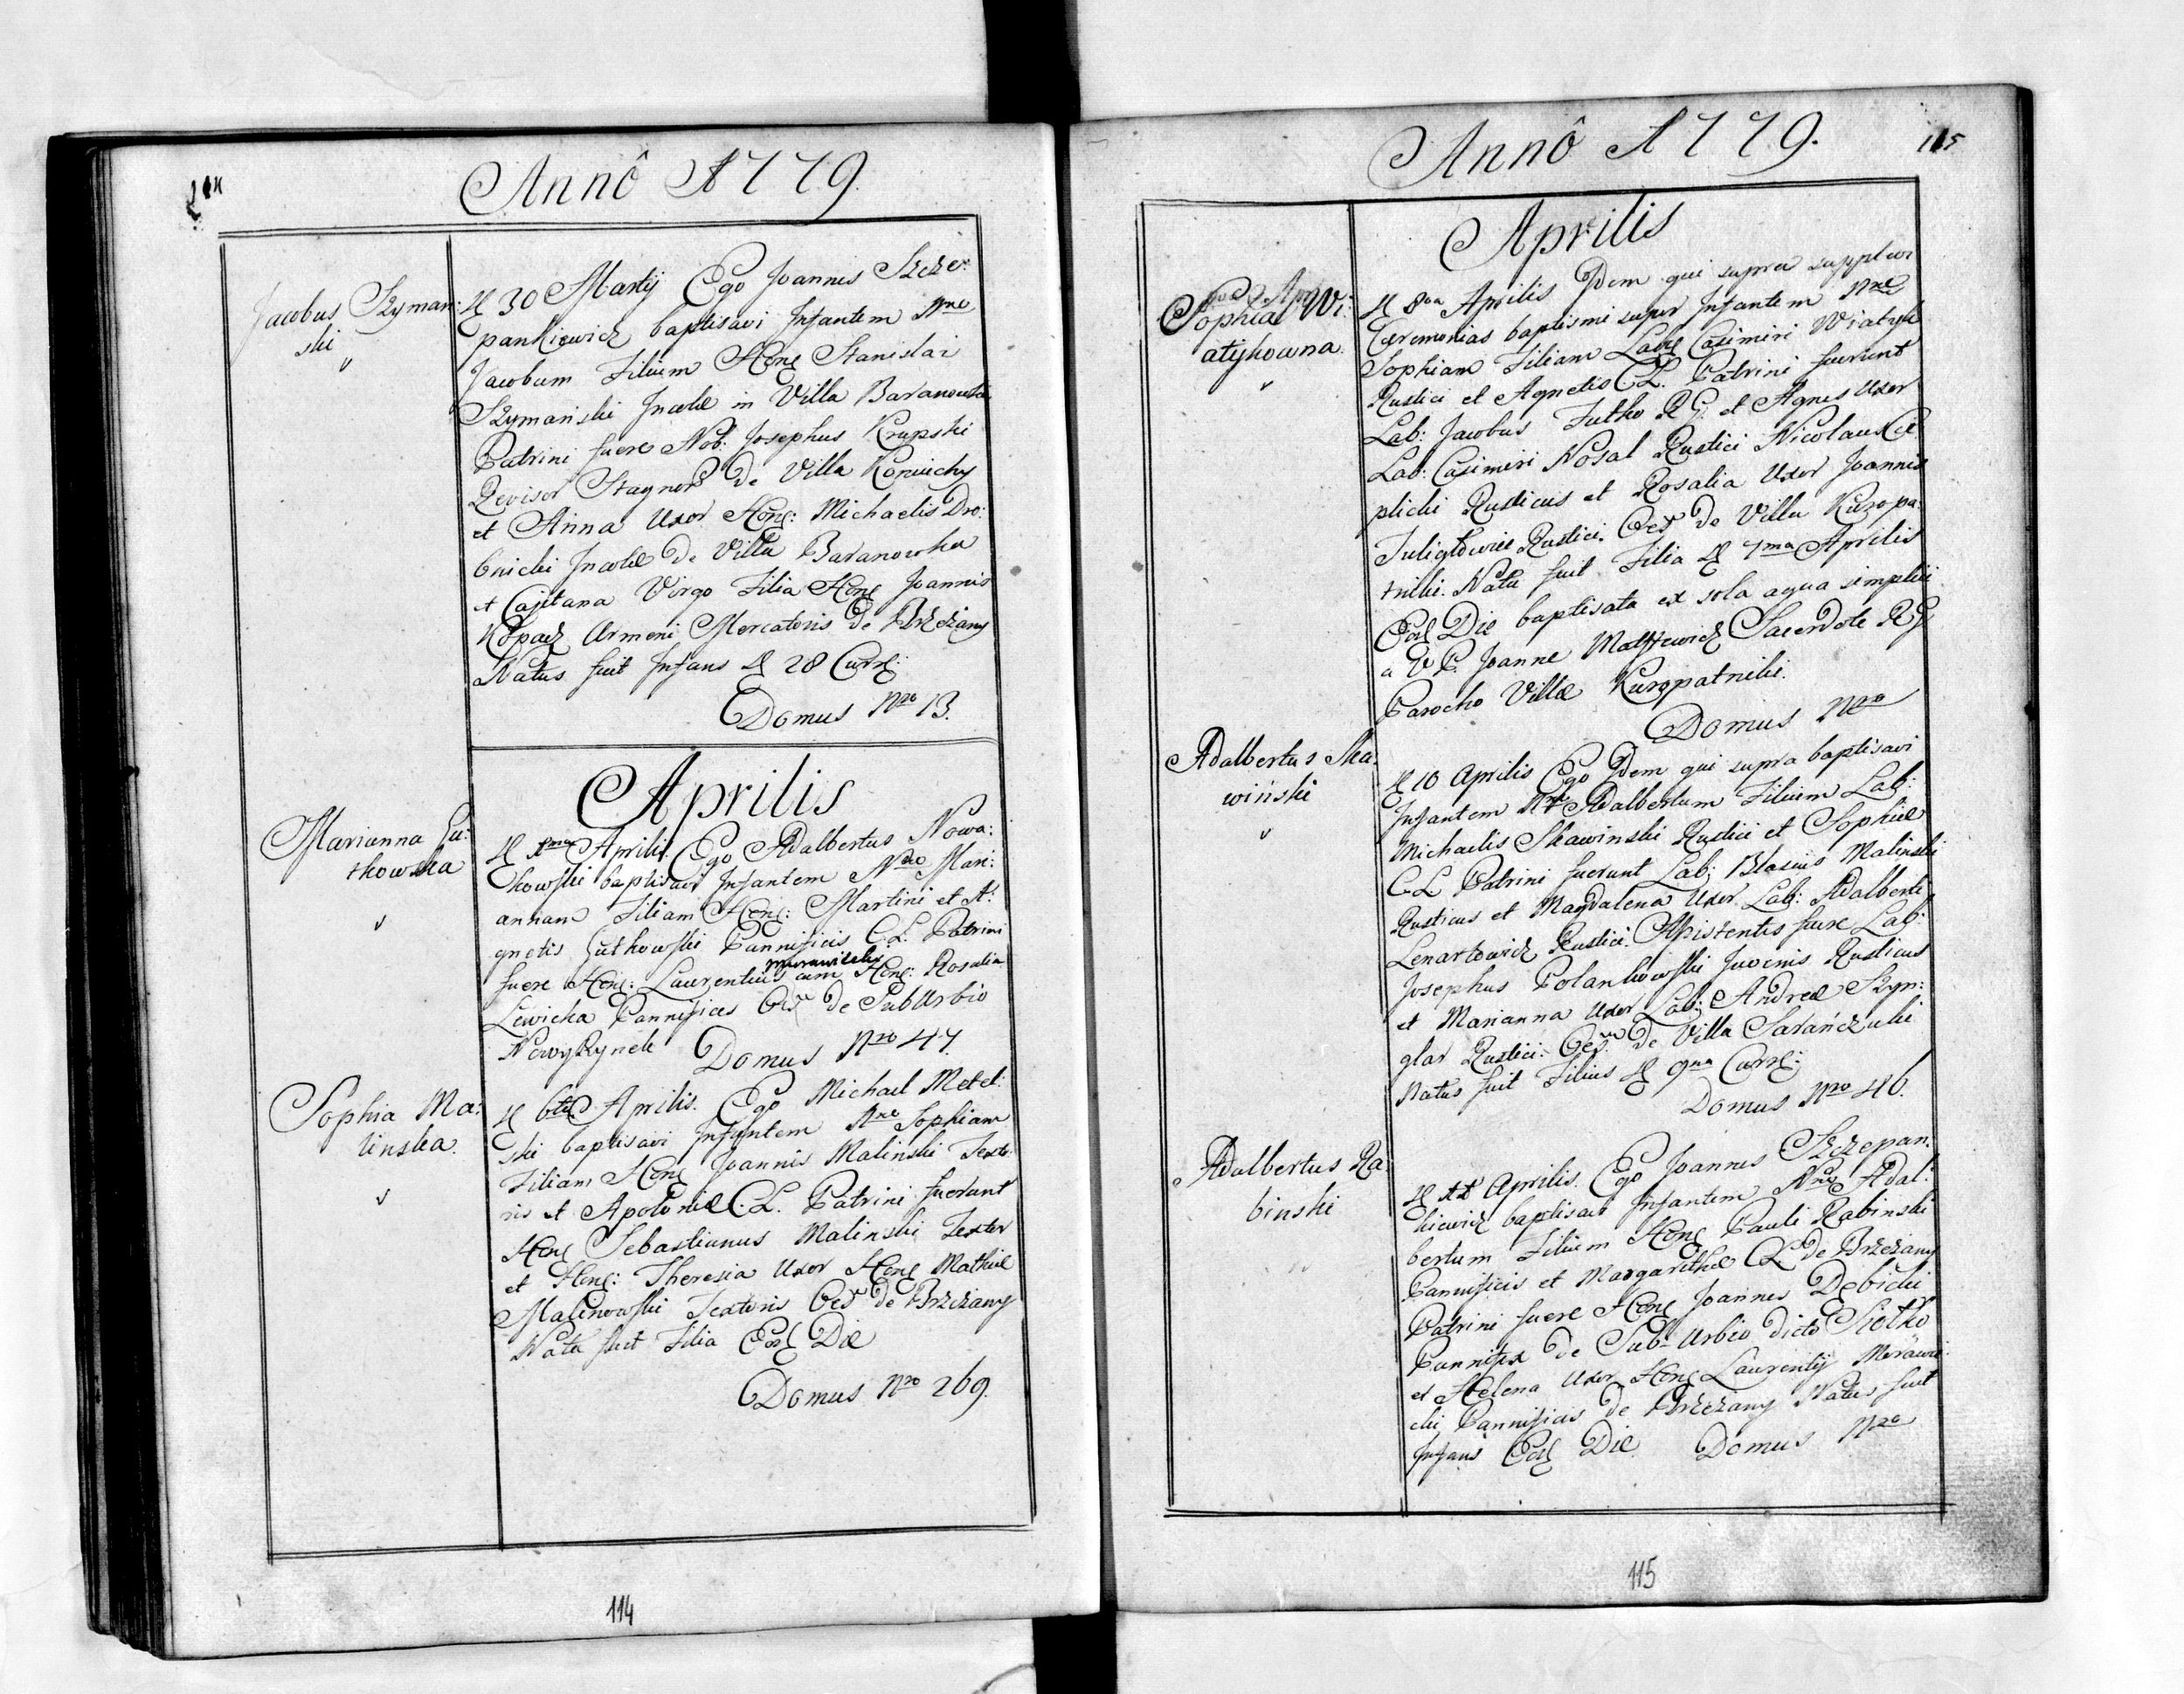 114
Annô 1779.
Jacobus Szyman:
ski
D 30 Martij Ego Joannes Szcze:
pankiewicz baptisavi Infantem Nne
Jacobum Filium Hon: Stanislai
Szymański Incolæ in Villa Baranowka
Patrini fuere Nob: Josephus Krupski
Revisor Stagnor de Villa Koniuchy
et Anna Uxor Hon: Michaelis Dro:
bnicki Incolæ de Villa Baranowka
et Cajetana Virgo Filia Hon: Joannis
Kopacz Armeni Mercatoris de Brzeżany
Natus fuit Infans D 28 Curr:
Domus Nro 13.
Aprilis
Marianna Gu:
tkowska
D 1ma Aprilis. Ego Adalbertus Nowa:
kowski baptisavi Infantem Nne Mari:
annam Filiam Hon: Martini et A:
gnetis Gutkowski Pannificis C. L. Patrini
murawiecki
fuere Hon: Laurentius cum Hon: Rosalia
Lewicka Pannifices Oes de SubUrbio
NowyRynek Domus Nro 47.
Sophia Ma:
linska.
D 6ta Aprilis. Ego Michael Metel:
ski baptisavi Infantem Nne Sophiam
Filiam Hon: Joannis Malinski Texto:
ris et Apoloniæ C. L. Patrini fuerunt
Hon: Sebastianus Malinski Textor
et Hon: Theresia Uxor Hon: Mathiæ
Malinowski Textoris Oes de Brzeżany
Nata fuit Filia Eod Die
Domus Nro 269.
114
Annô 1779.
115
Aprilis
Sophia Wi:
atykowna.
D 8va Aprilis Idem qui supra supplevi
Cæremonias baptismi super Infantem Nne
Sophiam Filiam Lab: Casimiri Wiatyk
Rustici et Agnetis C. L. Patrini fuerunt
Lab: Jacobus Futko R. G. et Agnes Uxor
Lab: Casimiri Nosal Rustici Nicolaus Ce
plicki Rusticus et Rosalia Uxor Joannis
Tuligłowicz Rustici. Oes de Villa Kuropa:
tniki. Nata fuit Filia D 7ma Aprilis
Eod Die baptisata ex sola aqua simplici
a V. P. Joanne Matfiewicz Sacerdote R. G.
Parocho Villæ Kuropatniki.
Domus Nro
Adalbertus Ska:
winski
D 10 Aprilis Ego Idem qui supra baptisavi
Infantem Nne Adalbertum Filium Lab:
Michaelis Skawinski Rustici et Sophiæ
C. L. Patrini fuerunt Lab: Blasius Malinski
Rusticus et Magdalena Uxor Lab: Adalberti
Lenartowicz Rustici. Assistentes fuere Lab:
Josephus Polankowski Juvenis Rusticus
et Marianna Uxor Lab: Andreæ Szyn:
glar Rustici. Oes de Villa Sarańczuki
Natus fuit Filius D 9na Curr:
Domus Nro 46.
Adalbertus Ra:
binski
D 11 Aprilis. Ego Joannes Szczepan:
kiewicz baptisavi Infantem Nne Adal:
bertum Filium Hon: Pauli Rabinski
Pannificis et Margarithæ C. L. de Brzeżany
Patrini fuere Hon: Joannes Dębicki
Pannifex de Sub-Urbio dicto Siołko
et Helena Uxor Hon: Laurentij Morawi:
cki Pannificis de Brzeżany Natus fuit
Infans Eod Die. Domus Nro
115